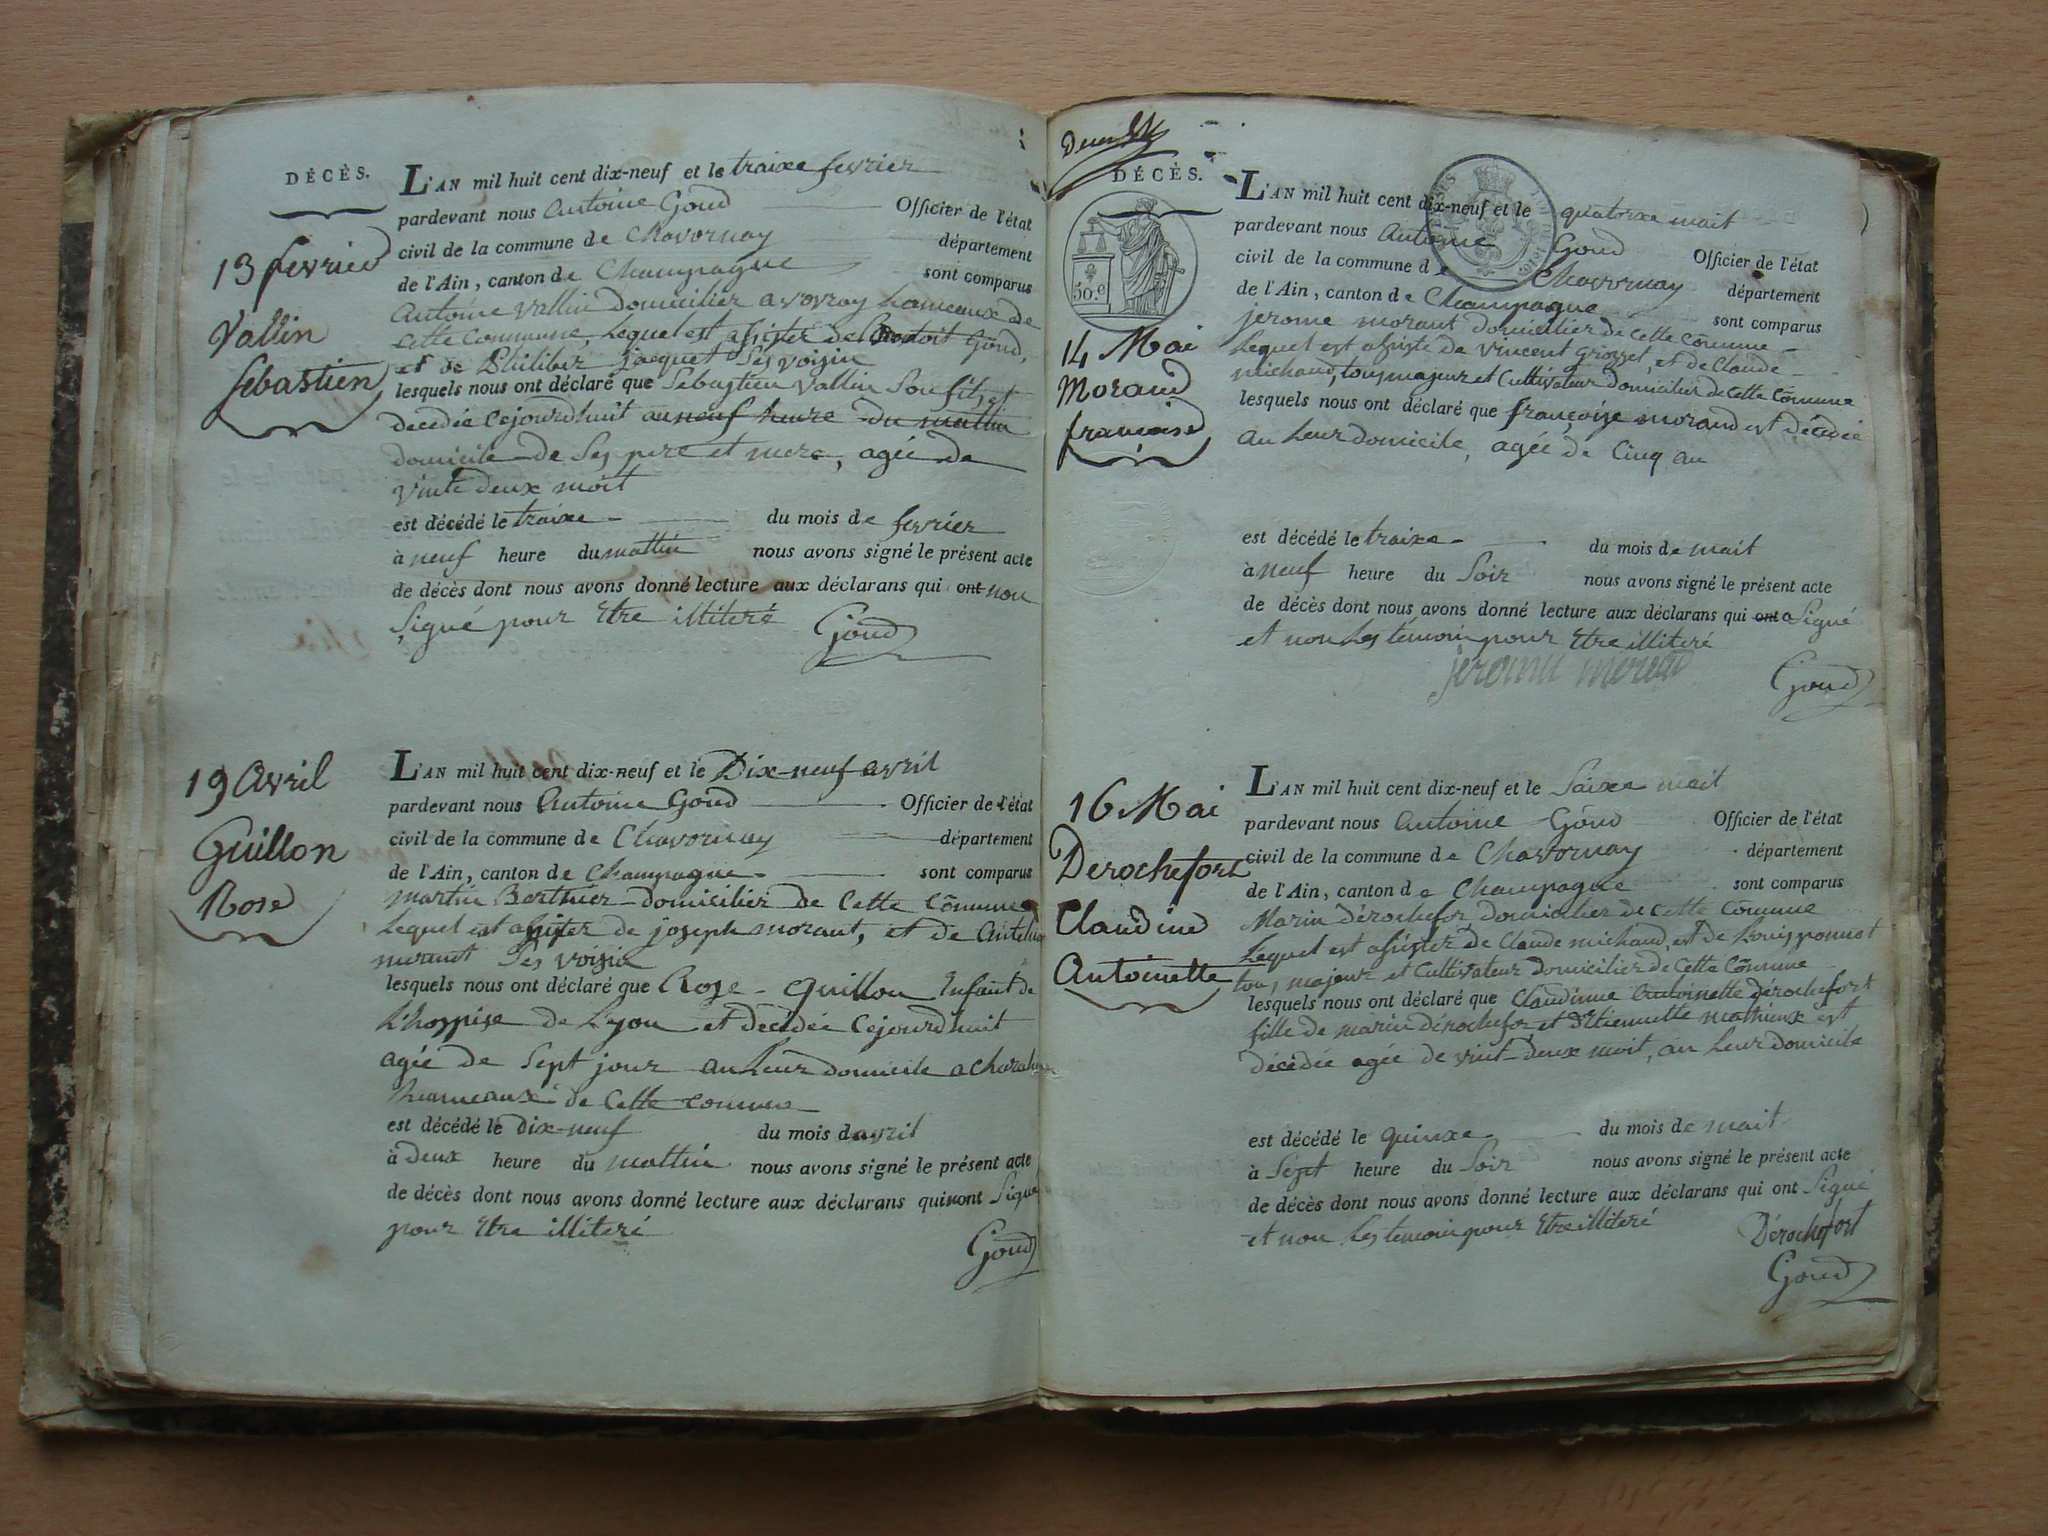 DÉCÈS.
L'AN mil huit cent dix-neuf et le traixe fevrier
pardevant nous Antoine Goud Officier de l'état
civil de la commune de Chavornay département
de l'Ain, canton de Champagne sont comparus
Antoine Vallin domicilier a vovray hameaux de
cette commune, lequel est assister de Goud,
et de Philiber Jacquet Ses voisin
lesquels nous ont déclaré que Sebastien Vallin Son fils, et
decedée cejourdhuit au neuf heure du mattin
domicile de Ses pere et mere, agée de
vinte deux moit
est décédé le traixe du mois de fevrier
à neuf heure du mattin nous avons signé le présent acte
de décès dont nous avons donné lecture aux déclarans qui ont non
Signé pour Etre illiteré
Goud
13 fevrier
Vallin
Sebastien
L'AN mil huit cent dix-neuf et le Dix-neuf avril
pardevant nous Antoine Goud Officier de l'état
civil de la commune de Chavornay département
de l'Ain, canton de Champagne sont comparus
martin Berthier domicilier de Cette Cõmune
Lequel est assister de joseph morant, et de
morant Ses voisin
lesquels nous ont déclaré que Rose Guillon Enfant de
L'hospise de Lyon et decedée Cejourdhuit
agée de Sept jour au Leur domicile a
hameaux de Cette comune
est décédé le dix-neuf du mois d avril
à deux heure du mattin nous avons signé le présent acte
de décès dont nous avons donné lecture aux déclarans qui nont Signé
pour Etre illiteré
Goud
19 Avril
Guillon
Rose
DÉCÈS.
50.c
L'AN mil huit cent dix-neuf et le quatorxe mait
pardevant nous Antoine Goud Officier de l'état
civil de la commune de Chavornay département
de l'Ain, canton de Champagne sont comparus
jerome morant domicilier de cette Cõmune
Lequel est assisté de Vincent Grosset, et de Claude
michaud, tous majeur et Cultivateur domicilier de cette Cõmune
lesquels nous ont déclaré que françoise morand est décédée
au Leur domicile, agée de Cinq an
est décédé le traixe du mois de mait
à neuf heure du Soir nous avons signé le présent acte
de décès dont nous avons donné lecture aux déclarans qui ont a Signé
et non Les témoin pour Etre illiteré
Goud
14 Mai
Morand
francoise
L'AN mil huit cent dix-neuf et le Saixe mait
pardevant nous Antoine Goud Officier de l'état
civil de la commune de Chavornay département
de l'Ain, canton de Champagne sont comparus
Marin Dérochefor domicilier de cette Cõmune
Lequel est assister de Claude michaud, est de
tou, majeur et Cultivateur domicilier de Cette Cõmune
lesquels nous ont déclaré que Claudinne Antoinette dérochefort
fille de marin dérochefor et d'Etiennette mathieux est
décedée agée de vint deux moit, au Leur domicile
est décédé le quinxe du mois de mait
à Sept heure du Soir nous avons signé le présent acte
de décès dont nous avons donné lecture aux déclarans qui ont Signé
et non Les temoin pour Etre illiteré
Dérochefort
Goud
16 Mai
Derochefort
Claudine
Antoinette